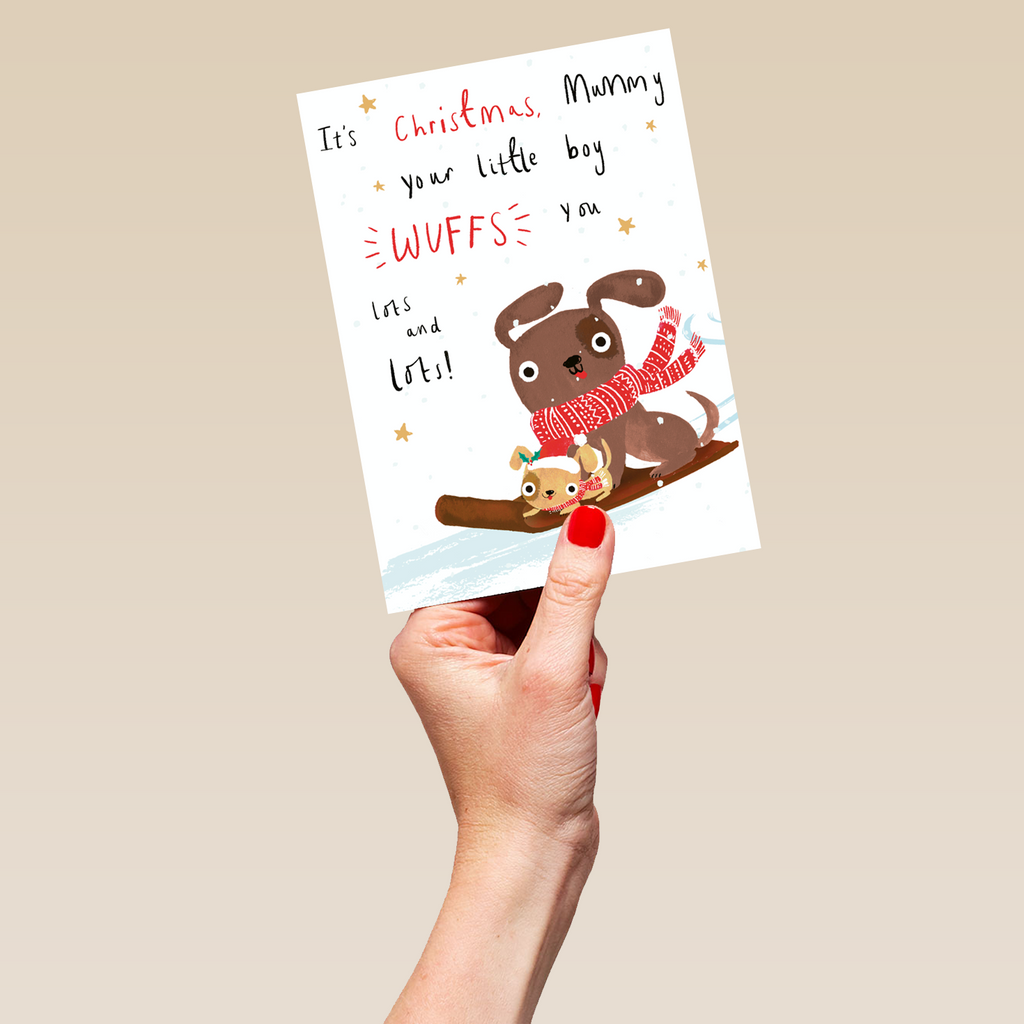 It's Christmas, Mummy
your little boy
WUFFS you
lots
and
lots!